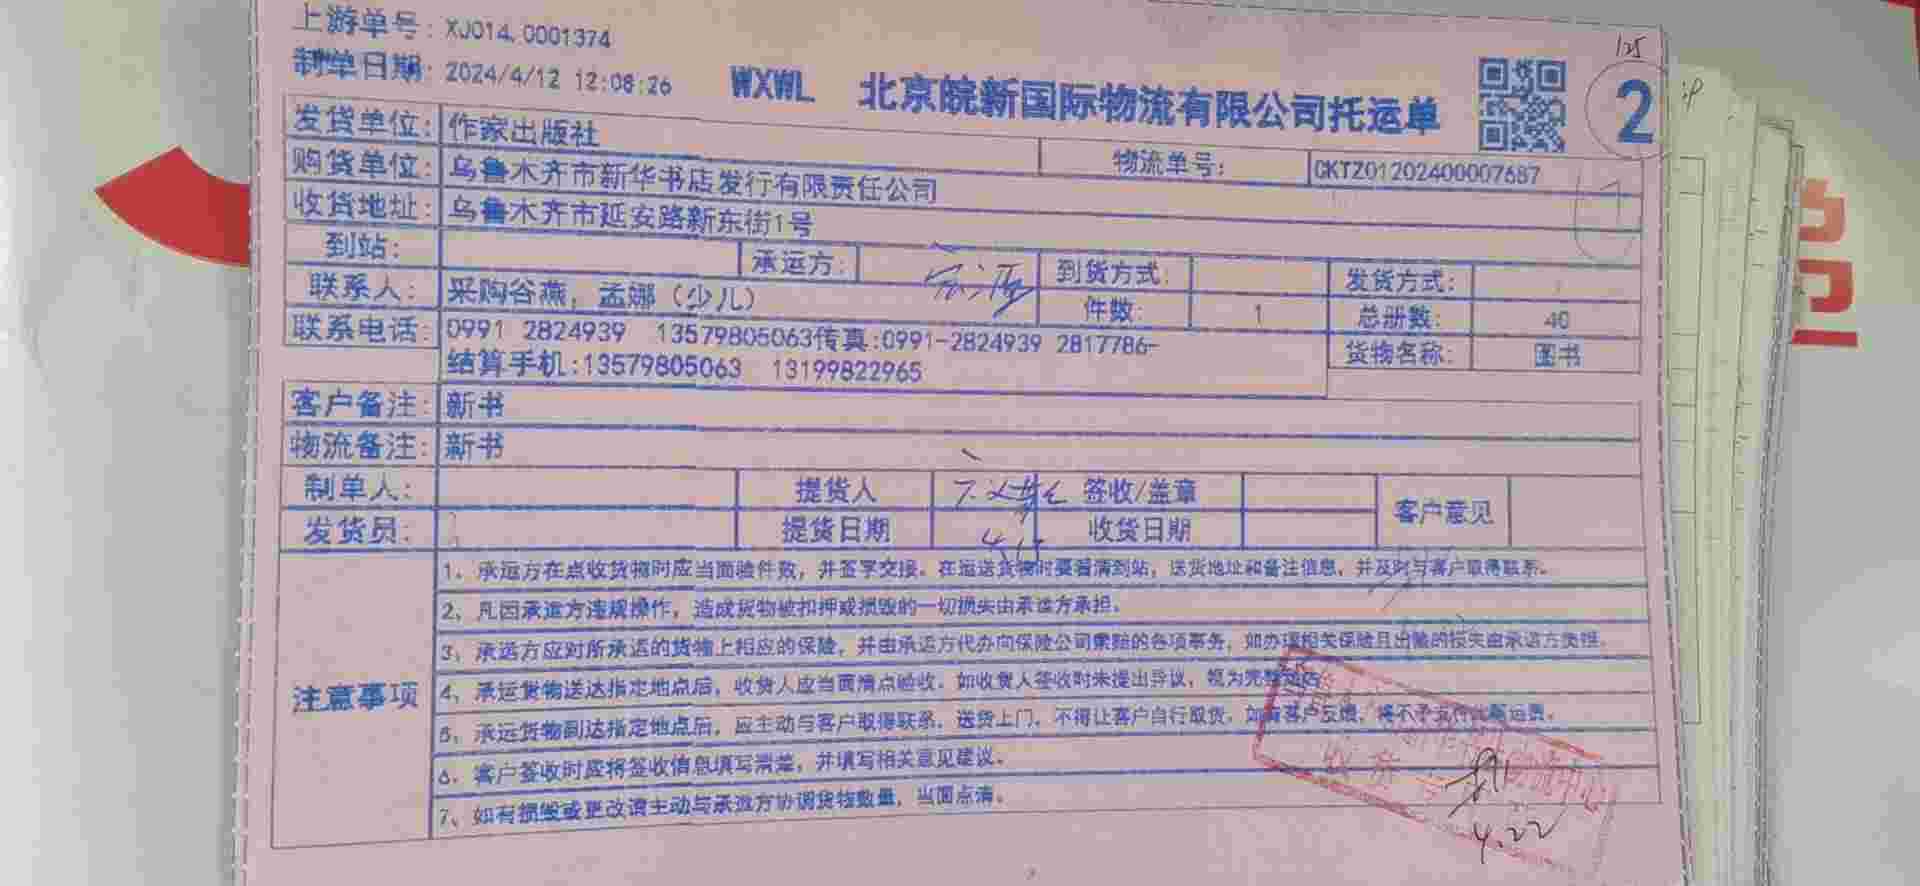 上游单号: XJ014.0001374
制单日期: 2024/4/12 12:08:26
WXWL 北京皖新国际物流有限公司托运单
125
2
发货单位: 作家出版社
物流单号: CKTZ01202400007687
购货单位: 乌鲁木齐市新华书店发行有限责任公司
收货地址: 乌鲁木齐市延安路新东街1号
到站: 承运方: 到货方式: 发货方式:
联系人: 采购谷燕, 孟娜 (少儿) 件数: 1 总册数: 40
联系电话: 0991 2824939 13579805063传真:0991-2824939 2817786-
结算手机:13579805063 13199822965
货物名称: 图书
客户备注: 新书
物流备注: 新书
制单人: 提货人 签收/盖章 客户意见
发货员: 提货日期 收货日期
注意事项
1、承运方在点收货物时应当面验件数，并签字交接。在运送货物时要看清到站，送货地址和备注信息，并及时与客户取得联系。
2、凡因承运方违规操作，造成货物被扣押或损毁的一切损失由承运方承担。
3、承运方应对所承运的货物上相应的保险，并由承运方代办向保险公司索赔的各项事务，如办理相关保险且出险的损失由承运方负担。
4、承运货物送达指定地点后，收货人应当面清点验收。如收货人签收时未提出异议，视为完整
5、承运货物到达指定地点后，应主动与客户取得联系，送货上门，不得让客户自行取货，如有客户反馈，将不予支付此期运费。
6、客户签收时应将签收信息填写清楚，并填写相关意见建议。
7、如有损毁或更改请主动与承运方协调货物数量，当面点清。
物流中心
收货专
4.22